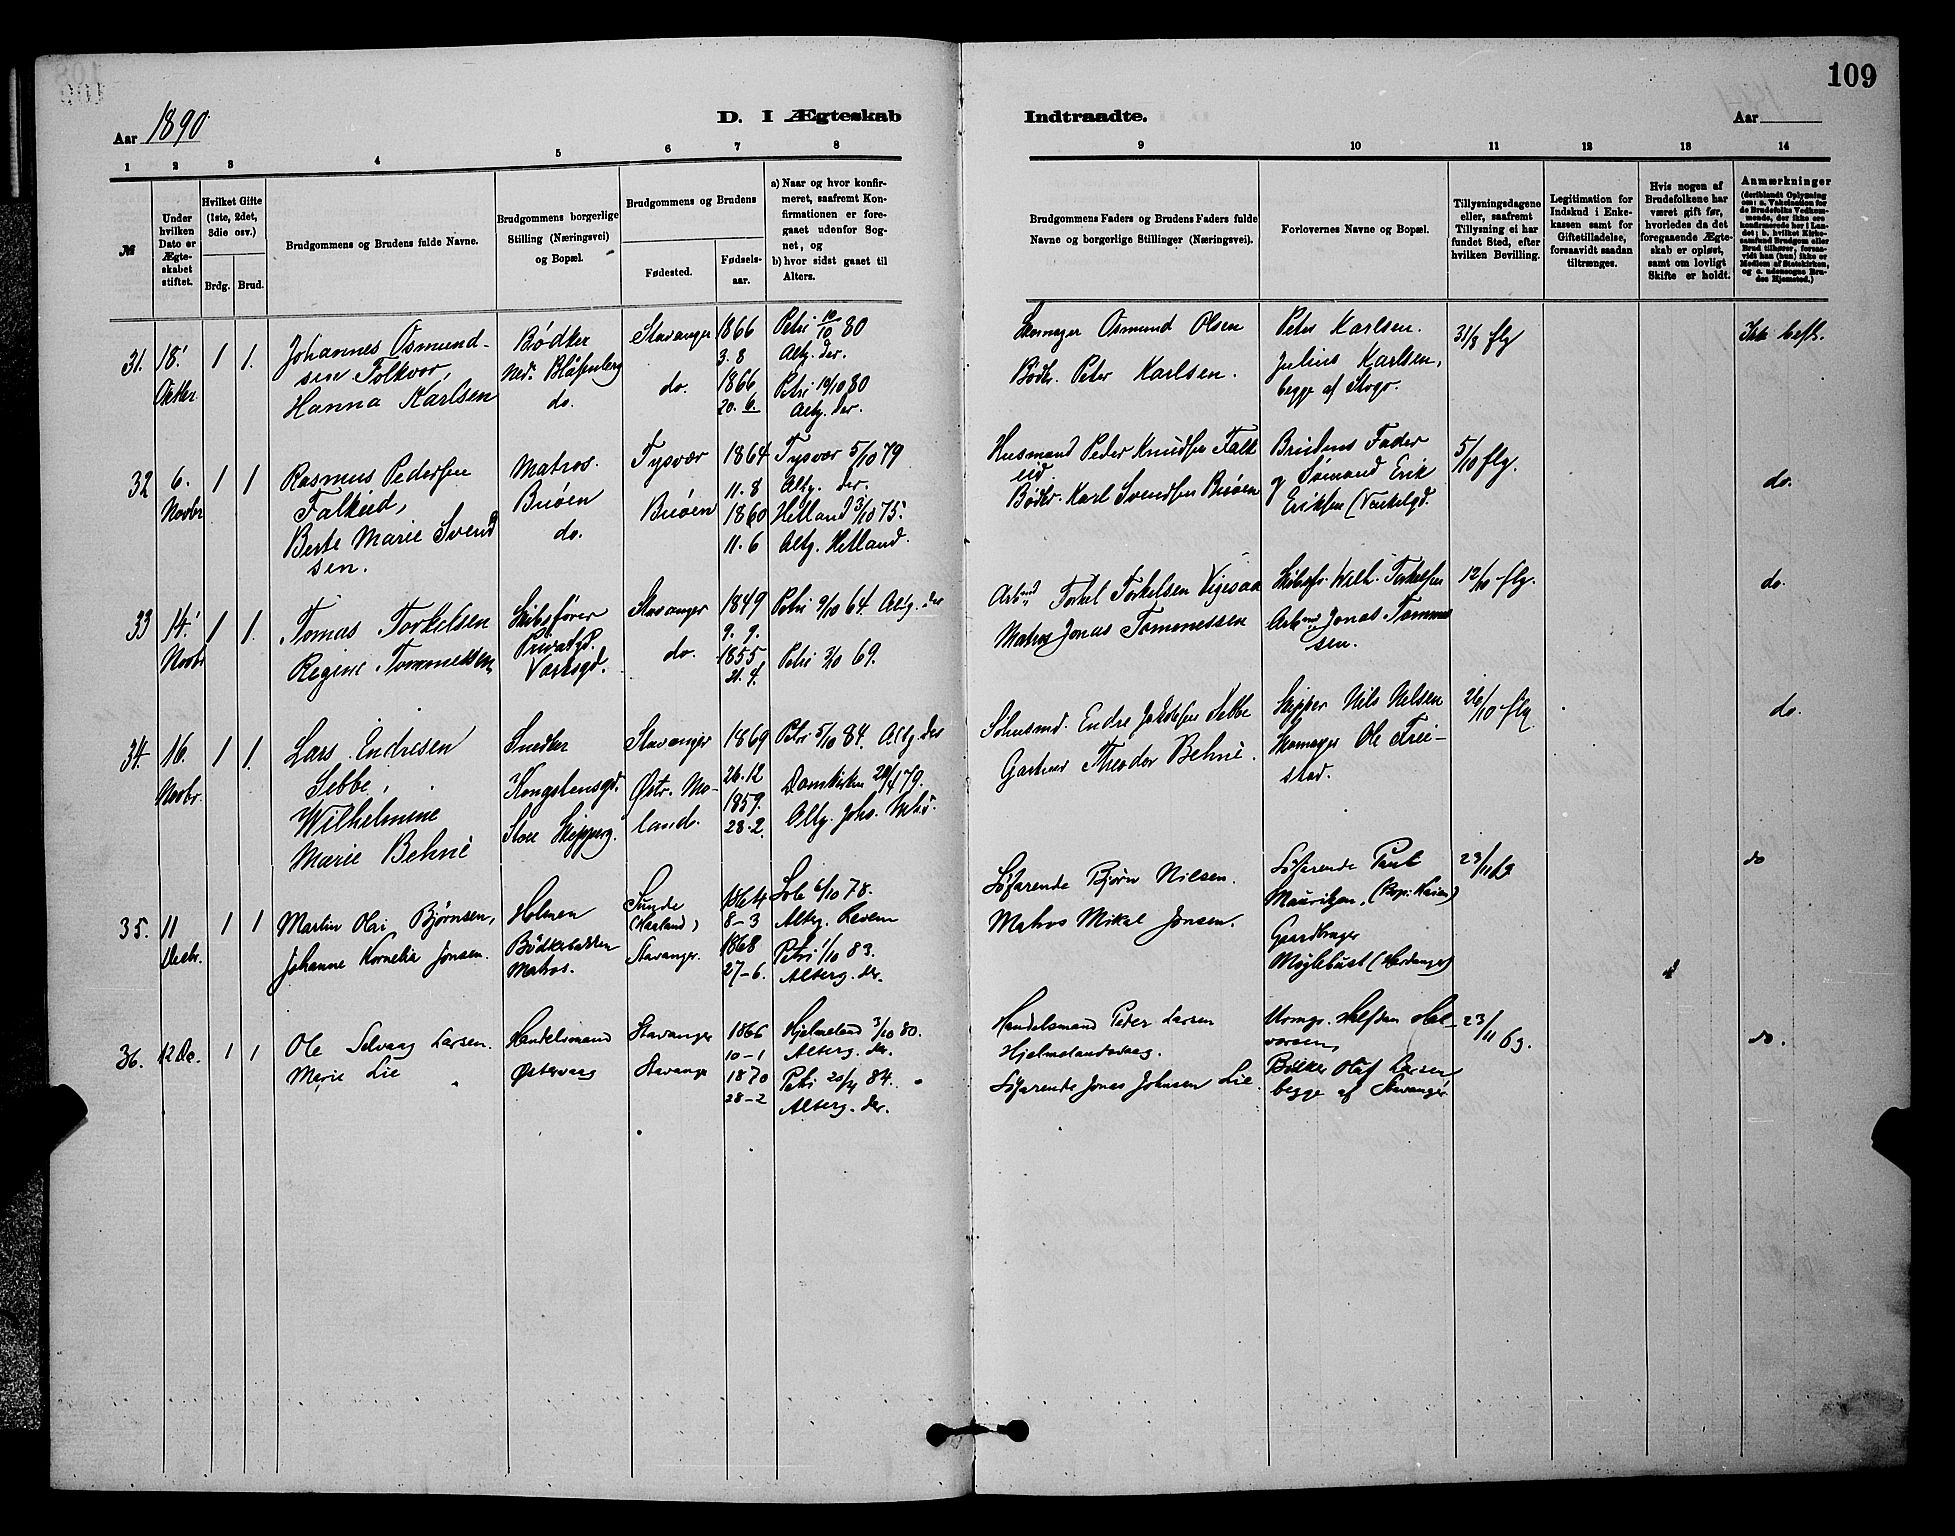 109
Aar 1890
D. I Ægteskab
Indtraadte.
Aar
1 2 3 4 5 6 7 8 9 10 11 12 13 14
№
Under hvilken Dato er Ægteskabet stiftet.
Hvilket Gifte (1ste, 2det, 3die osv.)
Brdg. Brud.
Brudgommens og Brudens fulde Navne.
Brudgommens borgerlige Stilling (Næringsvei) og Bopæl.
Brudgommens og Brudens
Fødested.
Fødselsaar.
a) Naar og hvor konfirmeret, saafremt Konfirmationen er foregaaet udenfor Sognet, og
b) hvor sidst gaaet til Alters.
Brudgommens Faders og Brudens Faders fulde Navne og borgerlige Stillinger (Næringsvei).
Forlovernes Navne og Bopæl.
Tillysningsdagene eller, saafremt Tillysning ei har fundet Sted, efter hvilken Bevilling.
Legitimation for Indskud i Enkekassen samt for Giftetilladelse, forsaavidt saadan tiltrænges.
Hvis nogen af Brudefolkene har været gift før, hvorledes da det foregaaende Ægteskab er opløst, samt om lovligt Skifte er holdt.
Anmærkninger
31. 18' Oktbr 1 1.
Johannes Osmund-
sen Tolkvor,
Hanna Karlsen
Bødker
Ned. Blåsenberg
do.
Stavanger
do.
1866
3. 8
1866
20. 6.
Petri 10/10 80
Altg. der.
Petri 10/10 80
Altg. der.
Osmund Olsen
Bødkr. Peter Karlsen.
Peter Karlsen.
Julius Karlsen,
begge af Stvgr.
31/8 flg
Ikke besl.
32 6. Novbr 1 1
Rasmus Pedersen
Falkeid,
Berte Marie Svend
sen.
Matros.
Buøen
do.
Tysvær
Buøen
1864
11. 8
1860
11. 6
Tysvær 5/10 79
Altg. der.
Hetland 3/10 75.
Altg. Hetland.
Husmand Peder Knudsen Falk
eid
Bødkr. Karl Svendsen Buøen
Brudens Fader
og Sømand Erik
Eriksen
5/10 flg.
do.
33 14' Novbr 1 1.
Tomas Torkelsen
Regine Tommessen
Skibsfører
Privatgd.
Værksgd.
Stavanger
do.
1849
9. 9.
1855
21. 9.
Petri 9/10 64. Altg. der
Petri 3/10 69.
Arbmd Torkel Torkelsen Vigesaa
Matros Jonas Tommessen
Skibsfr. Wilh. Torkelsen
Arbmd Jonas Tommes
sen.
12/10 flg.
do.
34. 16. Novbr. 1 1.
Lars Endresen
Sebbe,
Wilhelmine
Marie Behne
Snedker
Kongstensgd.
Store Skipperg.
Stavanger
Østr. Mo-
land.
1869
26. 12
1859.
28. 2.
Petri 5/10 84. Altg. der
Domkirken 20/4 79.
Altg. Johs.
Endre Jakobsen Sebbe
Gartner Theodor Behne.
Skipper Nils Nielsen
Skomager Ole Frei-
stad.
26/10 flg
do.
35. 11 Decbr. 1 1
Martin Olai Bjørnsen,
Johanne Kornelia Jonsen.
Holmen
Bødkerbakken
Matros.
Sunde
(Haaland)
Stavanger.
1864
8-3
1868
27-6.
Sole 6/10 78.
Alterg.
Petri 1/10 83.
Alterg. der.
Søfarende Bjørn Nilsen.
Matros Mikal Jonsen.
Søfarende Paul
Mauritzen,
Gaardbruger
Møglebust (Hardanger)
23/11
do
36. 12 De. 1 1
Ole Selvaag Larsen.
Marie Lie
Handelsmand
Østervaag
Stavanger
Stavanger
1866
10-1
1870
28-2
Hjelmeland 3/10 80.
Alterg. der.
Petri 20/4 84.
Alterg. der.
Handelsmand Peter Larsen
Hjelmelandsvaag.
Søfarende Jonas Johnsen Lie.
Urmgr. Halfdan Hal-
vorsen,
Bødker Olaf Larsen
begge af Stavanger
23/11
do.